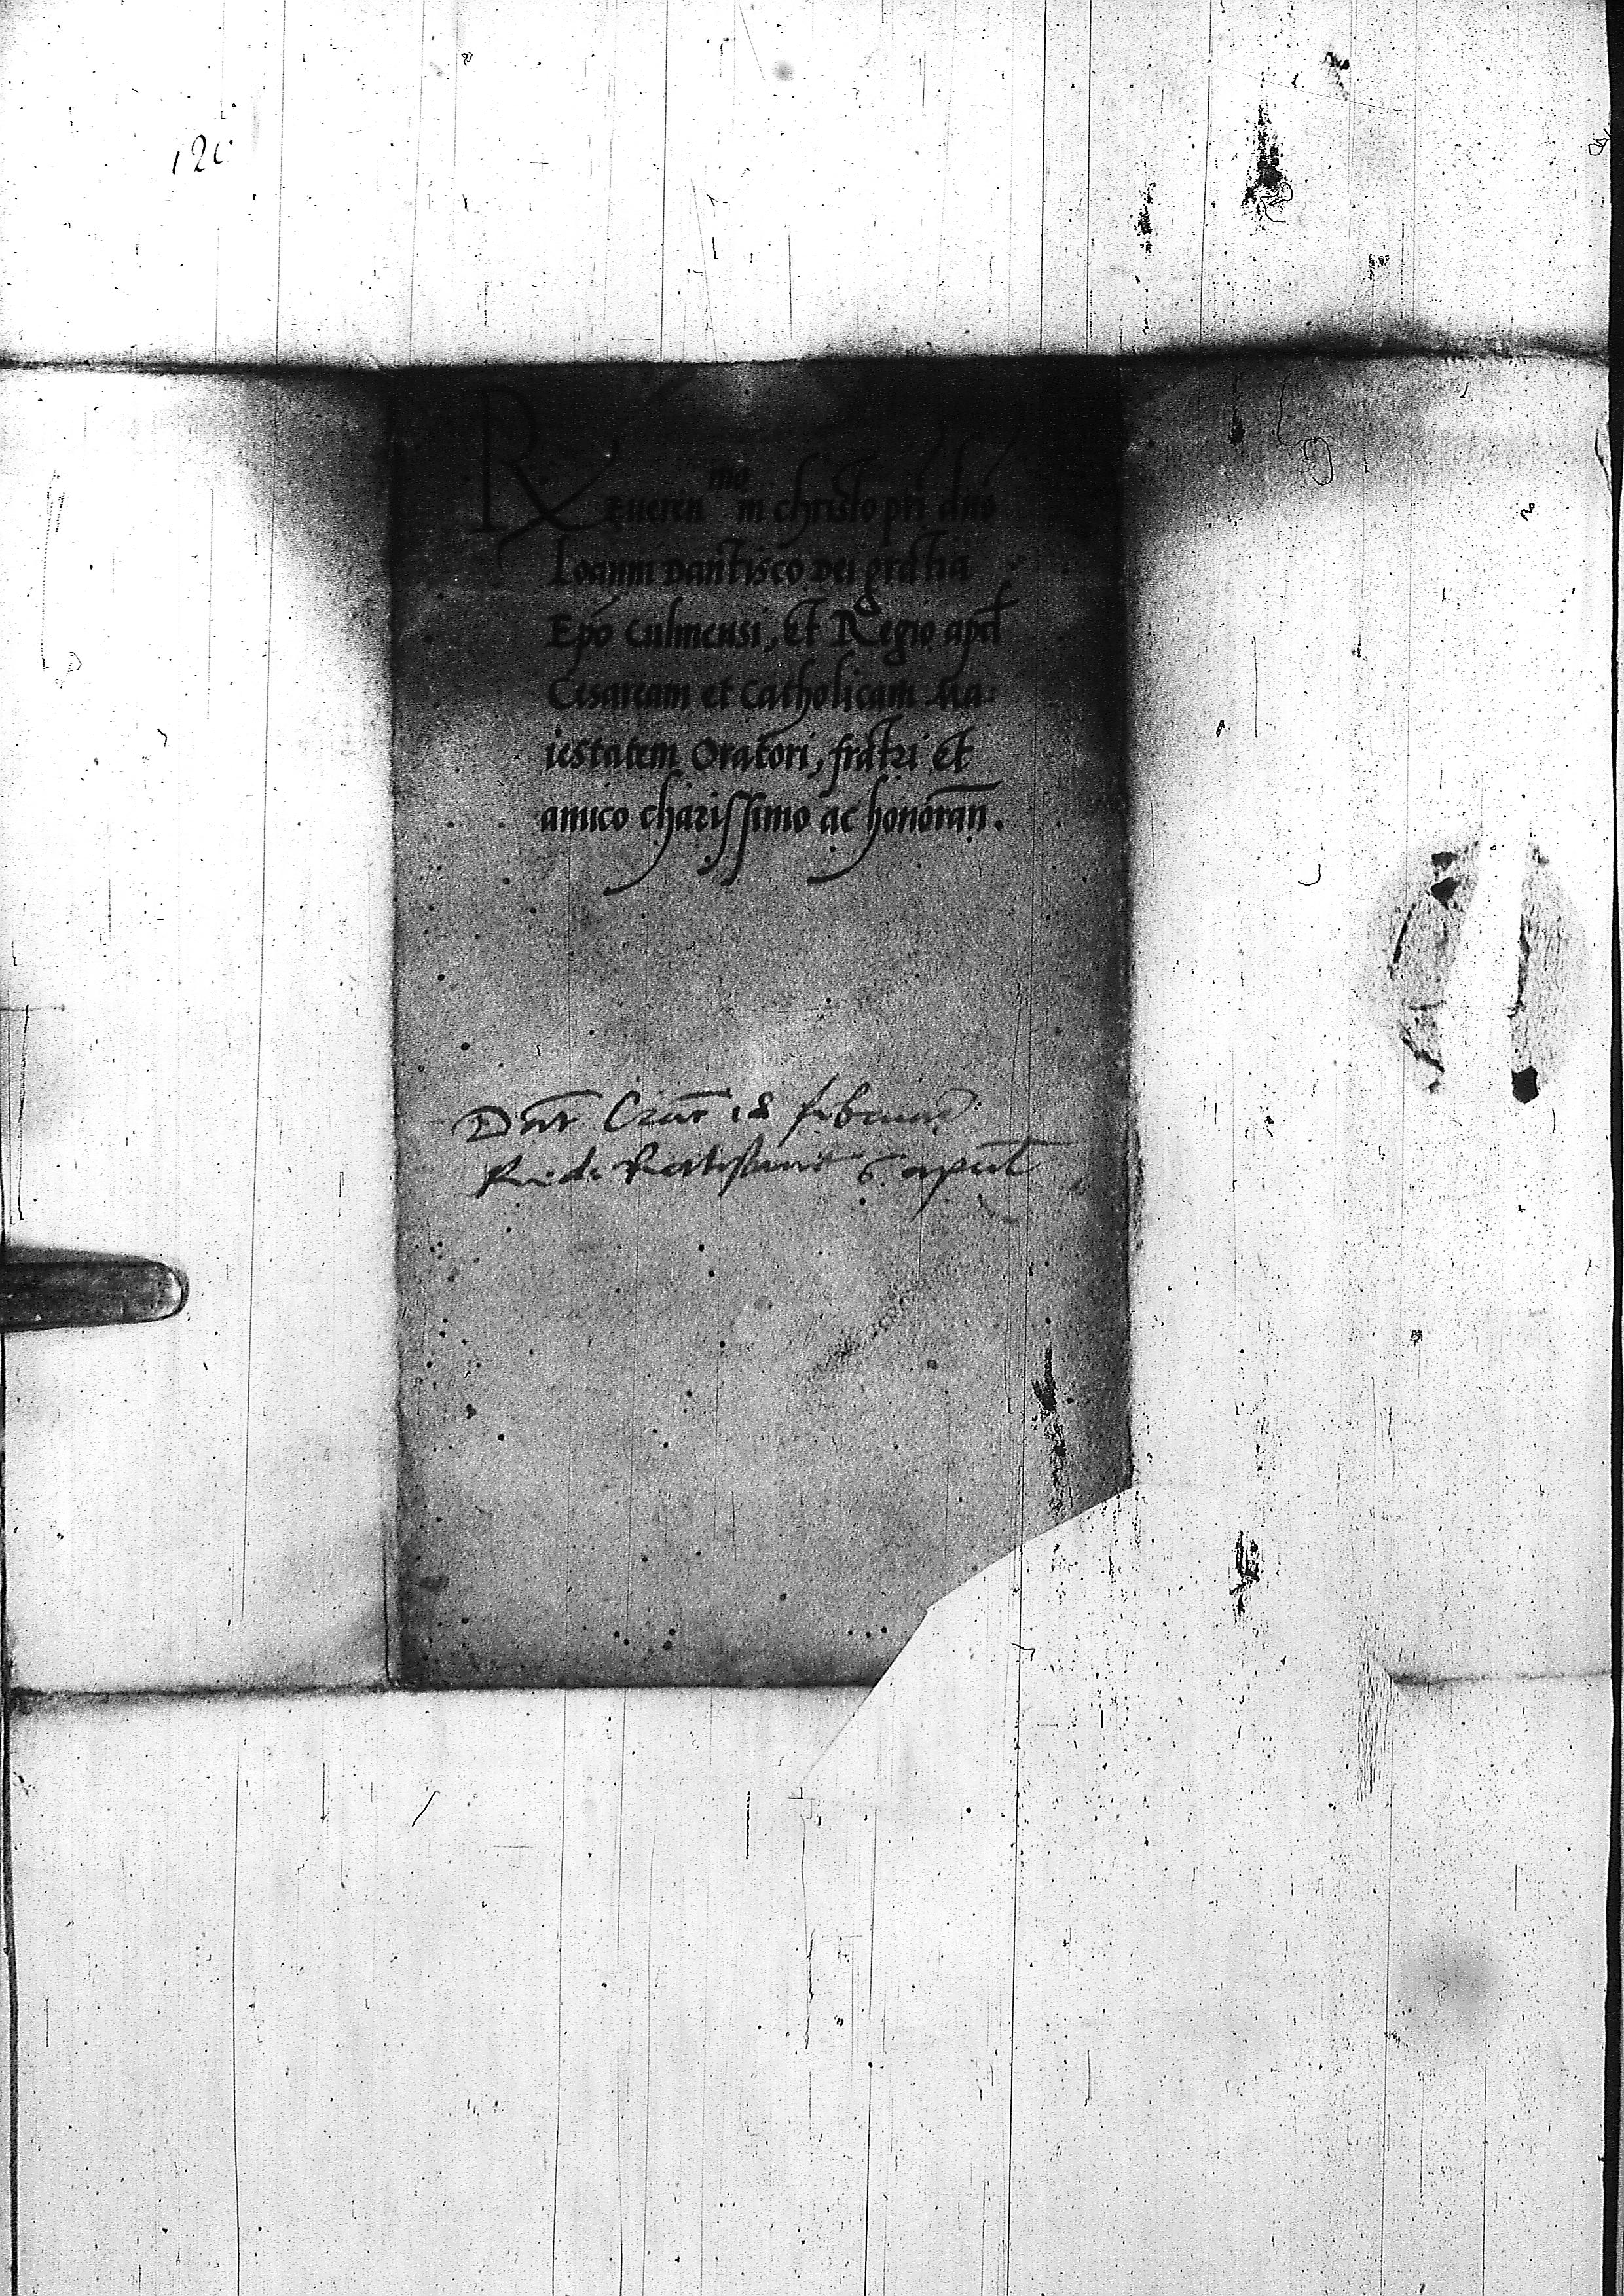 120
Reueren mo in christo pri dno
Ioanni Dantisco Dei gratia
Epo Culmensi, et Regio apd
Cesaream et Catholicam Ma:
iestatem Oratori, fratri et
amico charissimo ac honoran.
Dat 18 februar
Ratisbone 6 april